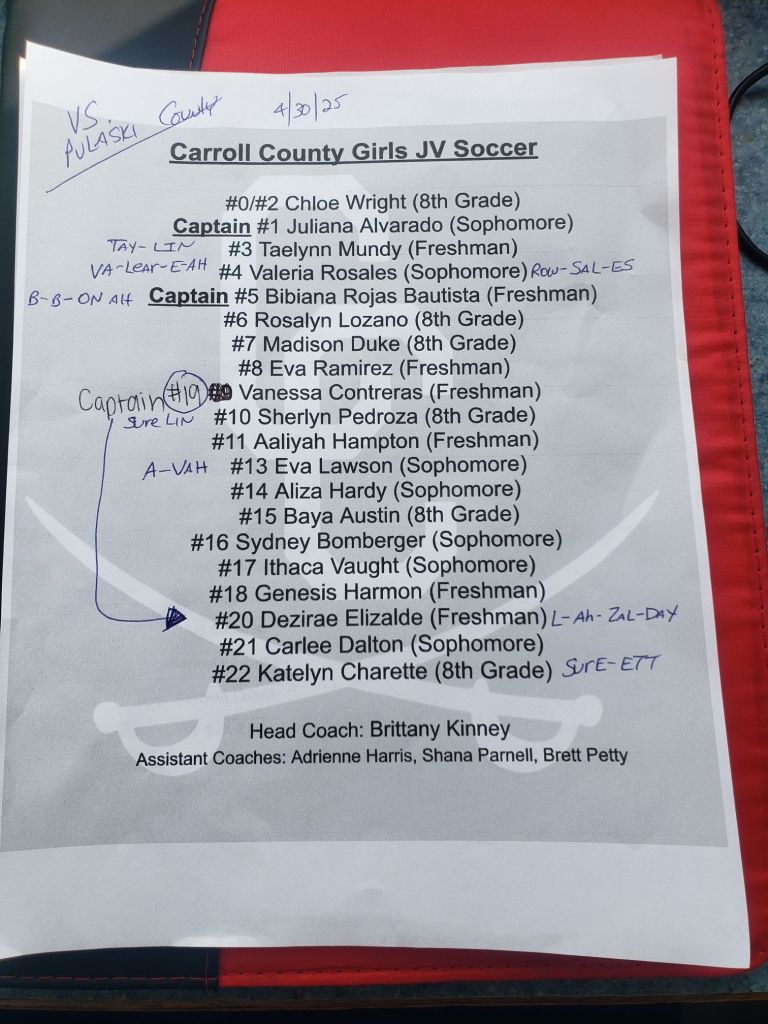 VS. County 4/30/25
PULASKI
Carroll County Girls JV Soccer
#0/#2 Chloe Wright (8th Grade)
Captain #1 Juliana Alvarado (Sophomore)
TAY-LIN #3 Taelynn Mundy (Freshman)
VA-LEAR-E-AH #4 Valeria Rosales (Sophomore) ROW-SAL-ES
B-B-ON AH Captain #5 Bibiana Rojas Bautista (Freshman)
#6 Rosalyn Lozano (8th Grade)
#7 Madison Duke (8th Grade)
#8 Eva Ramirez (Freshman)
Captain #19 #9 Vanessa Contreras (Freshman)
Sure LIN #10 Sherlyn Pedroza (8th Grade)
#11 Aaliyah Hampton (Freshman)
A-VAH #13 Eva Lawson (Sophomore)
#14 Aliza Hardy (Sophomore)
#15 Baya Austin (8th Grade)
#16 Sydney Bomberger (Sophomore)
#17 Ithaca Vaught (Sophomore)
#18 Genesis Harmon (Freshman)
#20 Dezirae Elizalde (Freshman) L-Ah-ZAL-DAY
#21 Carlee Dalton (Sophomore)
#22 Katelyn Charette (8th Grade) SurE-ETT
Head Coach: Brittany Kinney
Assistant Coaches: Adrienne Harris, Shana Parnell, Brett Petty